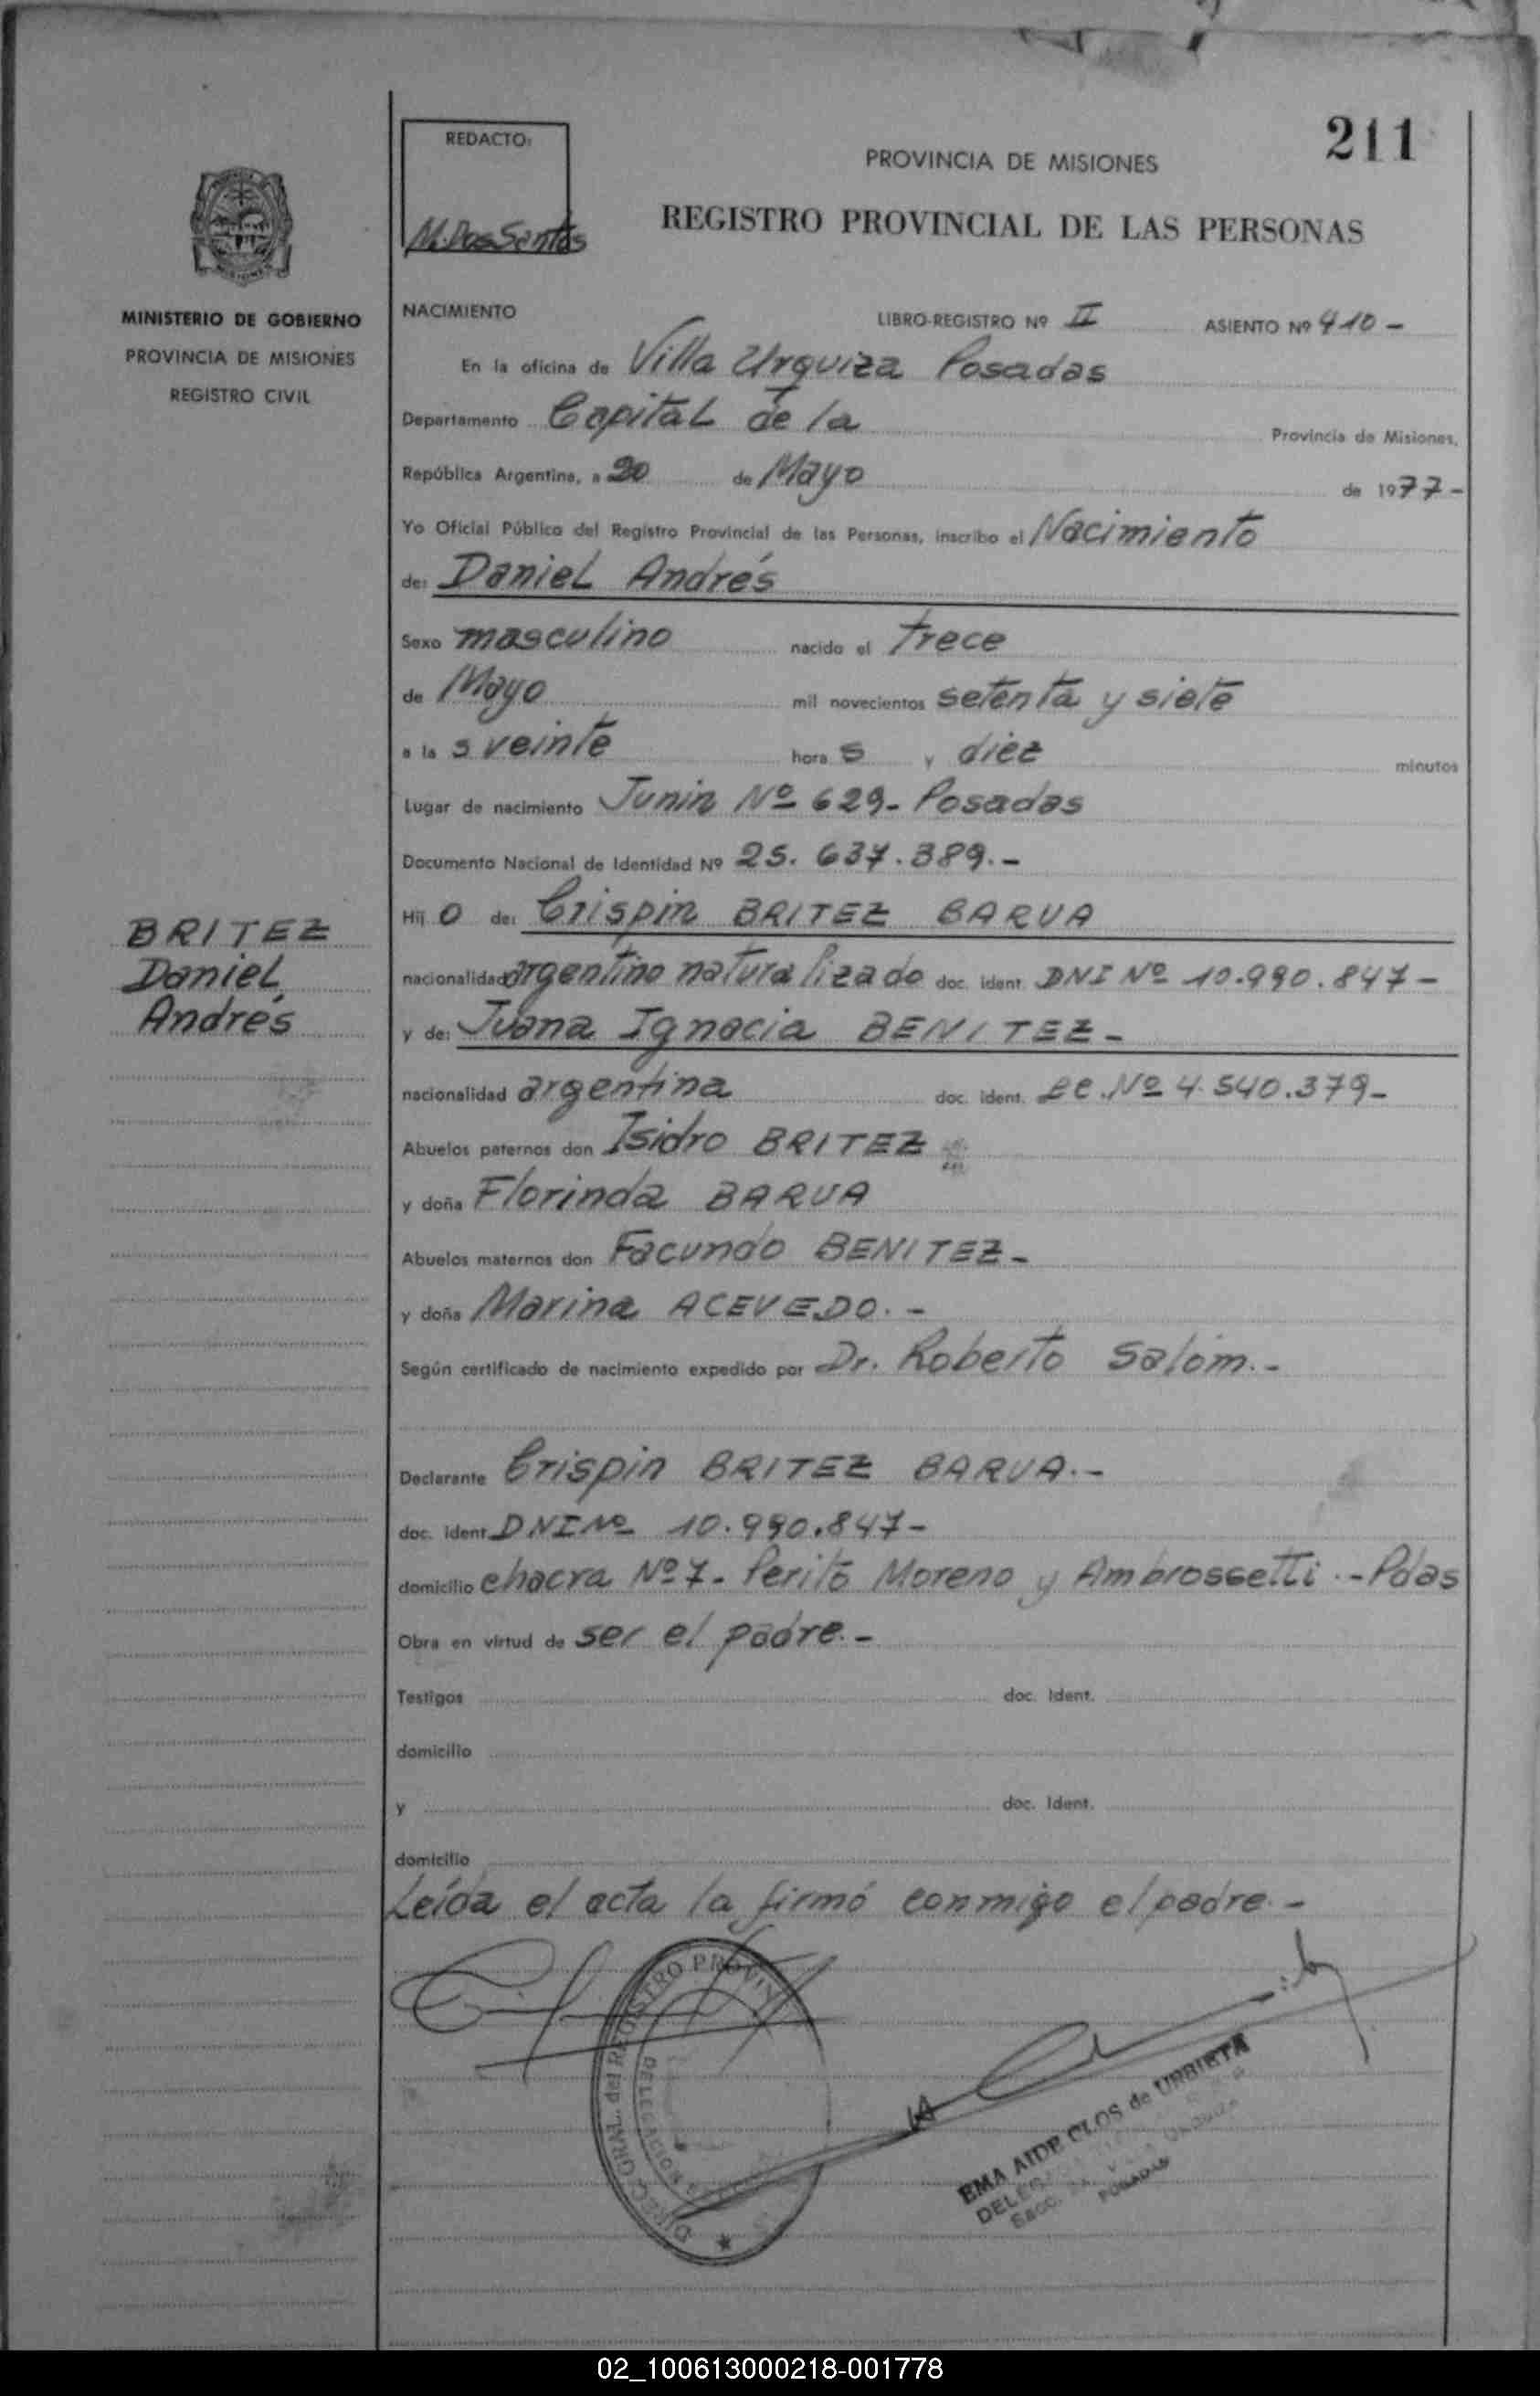 211
REDACTO:
M. Dos Santos
PROVINCIA DE MISIONES
REGISTRO PROVINCIAL DE LAS PERSONAS
MINISTERIO DE GOBIERNO
PROVINCIA DE MISIONES
REGISTRO CIVIL
NACIMIENTO LIBRO-REGISTRO Nº II ASIENTO Nº 410 -
En la oficina de Villa Urquiza Posadas
Departamento Capital de la Provincia de Misiones,
República Argentina, a 20 de Mayo de 1977 -
Yo Oficial Público del Registro Provincial de las Personas, inscribo el Nacimiento
de: Daniel Andrés
Sexo masculino nacido el trece
de Mayo mil novecientos setenta y siete
a la s veinte hora s y diez minutos
Lugar de nacimiento Junin Nº 629 - Posadas
Documento Nacional de Identidad Nº 25.637.389.-
Hij o de: Crispin BRITEZ BARUA
BRITEZ
Daniel
Andrés
nacionalidad argentino naturalizado doc. ident. DNI Nº 10.990.847 -
y de: Juana Ignacia BENITEZ -
nacionalidad argentina doc. ident. LC. Nº 4.540.379 -
Abuelos paternos don Isidro BRITEZ
y doña Florinda BARUA
Abuelos maternos don Facundo BENITEZ -
y doña Marina ACEVEDO. -
Según certificado de nacimiento expedido por Dr. Roberto Salom. -
Declarante Crispin BRITEZ BARUA. -
doc. ident DNI Nº 10.990.847 -
domicilio chacra Nº 7 - Perito Moreno y Ambrossetti . - Pdas
Obra en virtud de ser el padre. -
Testigos doc. Ident.
domicilio
y doc. Ident.
domicilio
Leída el acta la firmó conmigo el padre. -
DIREC. GRAL. del REGISTRO PROVIN
DELEGACION
EMA AIDE CLOS de URBIETA
POSADAS
02_100613000218-001778